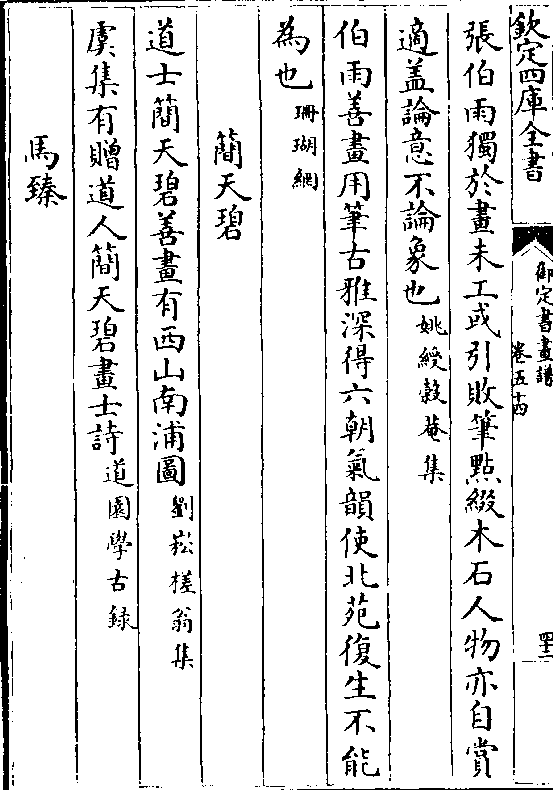 欽定四庫全書
御定書畫譜
卷五十四
四十二
張伯雨獨於畫未工或引敗筆點綴木石人物亦自賞
適盖論意不論象也姚綬穀菴集
伯雨善畫用筆古雅深得六朝氣韻使北苑復生不能
為也珊瑚網
簡天碧
道士簡天碧善畫有西山南浦圖劉崧槎翁集
虞集有贈道人簡天碧畫士詩道園學古録
馬臻